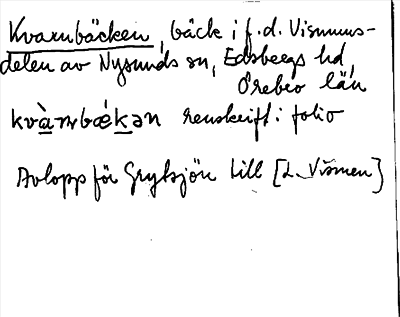 Kvarnbäcken, bäck i f.d. Vismens-
delen av Nysunds sn, Edsbergs hd,
Örebro län
kvà̲rnbǽk̲ən renskrift i folio
Avlopp för Grytsjön till [L. Vismen]